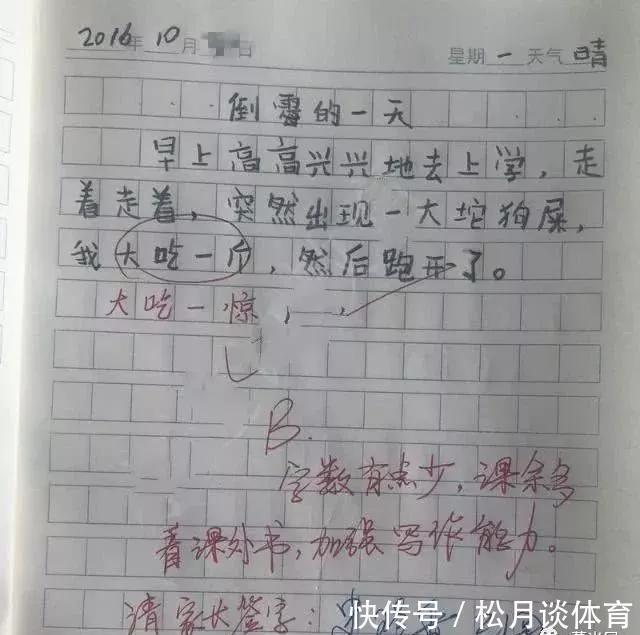 2016年10月 日 星期一天气晴
倒霉的一天
早上高高兴兴地去上学,走
着走着,突然出现一大坨狗屎,
我大吃一斤,然后跑开了。
大吃一惊
B.
字数有点少,课余多
看课外书,加强写作能力。
请家长签字:
快传号/松月谈体育